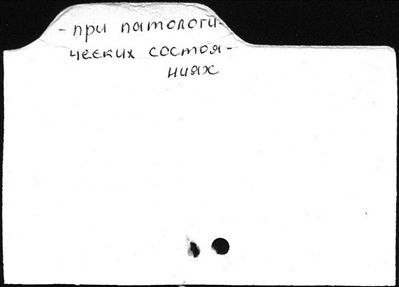 - при патологи-
ческих состоя-
ниях